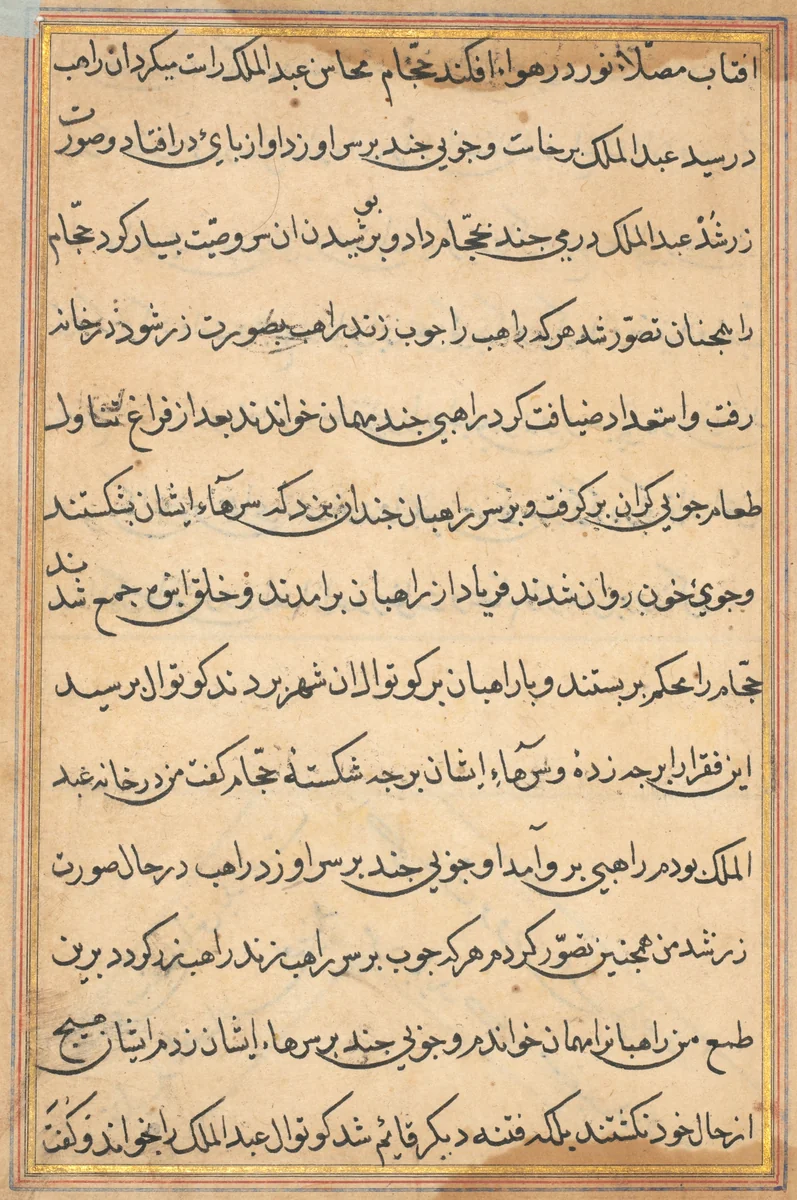 افتاب مصلّاءِ نور در هواء افکند حجّام محاسن عبد الملک راست میکرد ان راهب
در رسید عبد الملک برخاست و جوبی جند بر سر او زد او از بایٔ در افتاد و صورت
زر شُدْ عبد الملک درمی جند بحجّام داد و بر بوشیدن ان سر وصیّت بسیار کرد حجّام
را همجنان تصوّر شد هر که راهب را جوب زند راهب بصورت زر شود در خانه
رفت و استعداد ضیافت کرد راهبی جند مهمان خواندند بعد از فراغ تناول
طعام جوبی کران بر کرفت و بر سر راهبان جندان بزد که سرهآء ایشان بشکستند
و جویٔ خون روان شدند فریاد از راهبان برامدند و خلق انبوه جمع شدند
حجّام را محکم بر بستند و با راهبان بر کوتوال ان شهر بردند کوتوال برسید
این فقرا را برجه زدهٔ و سرهآءِ ایشان برجه شکستهٔ حجّام کفت من در خانه عبد
الملک بودم راهبی بر وآمد او جوبی جند بر سر او زد راهب در حال صورت
زر شد من همجنین تصوّر کردم هر که جوب بر سر راهب زند راهب زر کردد برین
طمع من راهبانرا مهمان خواندم و جوبی جند بر سرهاء ایشان زدم ایشان هیج
از حال خود نکشتند بلکه فتنه دیکر قائم شد کوتوال عبد الملک را بخواند و کُفتَ